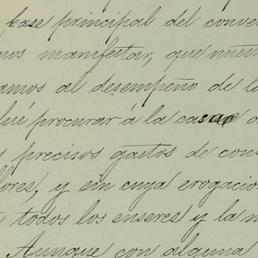 base principal del conven
mos manifestar, que nuest
amos al desempeño de lo
procurar á la casa
precisos gastos de cons
lores, y sin cuya erogacio
todos los enseres y la m
Aunque con alguna